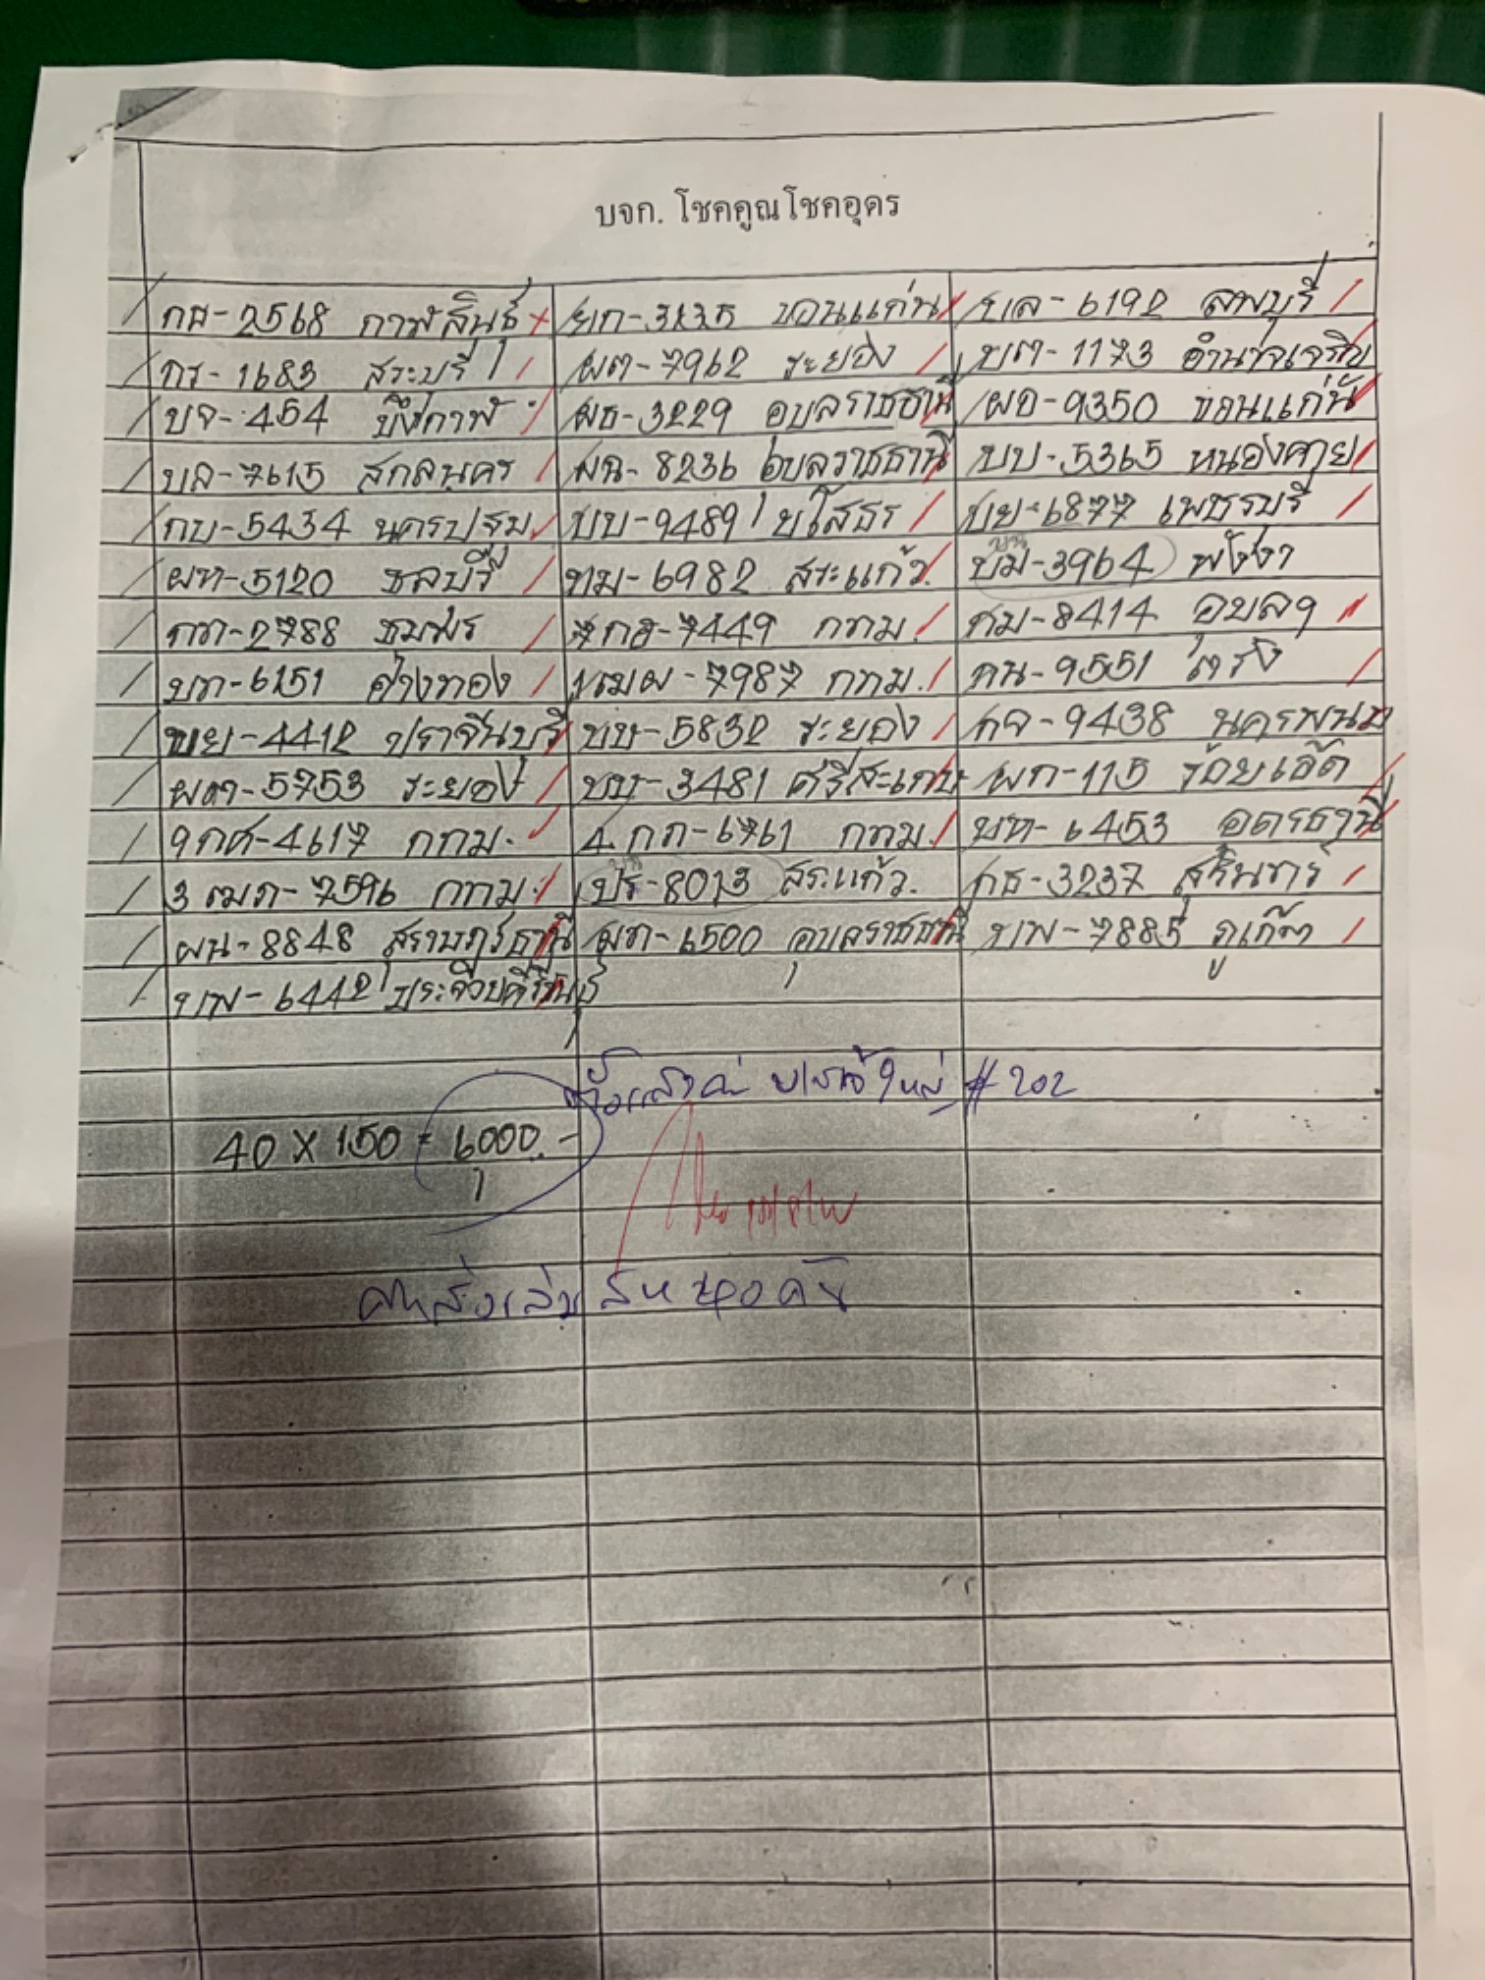 บจก. โชคคูณโชคอุดร
กส-2568 กาฬสินธุ์ ขก-3235 ขอนแก่น บล-6192 ลพบุรี
กร-1683 สระบุรี ผต-7962 ระยอง บต-1173 อำนาจเจริญ
บจ-454 บึงกาฬ ผธ-3229 อุบลราชธานี ผอ-9350 ขอนแก่น
บล-7615 สกลนคร ผฉ-8236 อุบลราชธานี บบ-5365 หนองคาย
กบ-5434 นครปฐม บบ-9489 ยโสธร บย-6877 เพชรบุรี
ผท-5120 ชลบุรี ทม-6982 สระแก้ว บม-3964 พังงา
กก-2788 7กอ-7449 กทม. กม-8414 อุบลฯ
บก-6151 อ่างทอง 1ฒผ-7987 กทม. กน-9551 ตรัง
ขย-4412 ปราจีนบุรี บบ-5832 ระยอง กจ-9438 นครพนม
ผต-5753 ระยอง บบ-3481 ศรีสะเกษ ผก-115 ร้อยเอ็ด
9กศ-4617 กทม. 4กก-6761 กทม. บท-6453 อุดรธานี
3ฒก-7596 กทม. บร-8013 สระแก้ว กธ-3237 สุรินทร์
ผน-8848 สุราษฎร์ธานี ผก-6500 อุบลราชธานี บพ-7885 ภูเก็ต
บพ-6442 ประจวบคีรีขันธ์
#202
40 X 150 = 6000.-